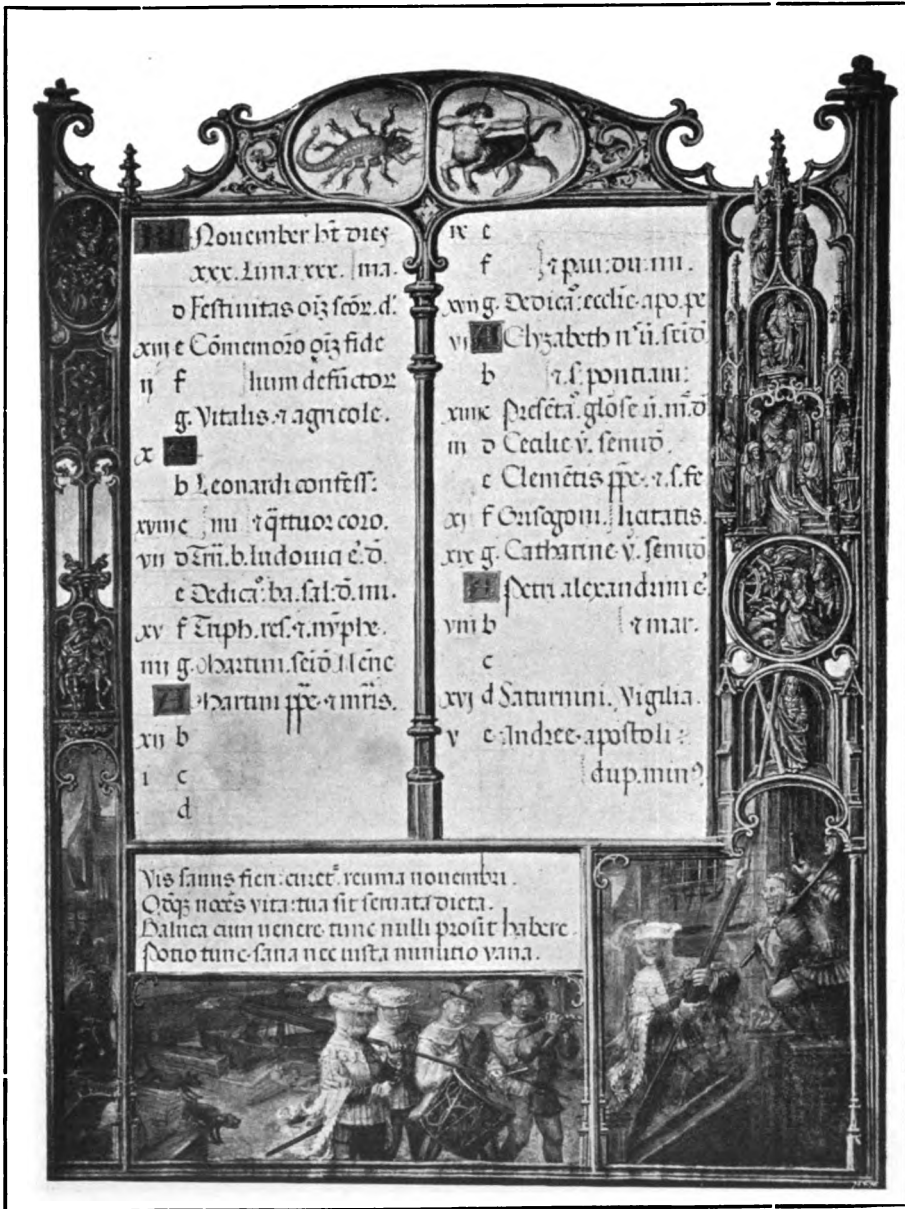 Nouember ht dies
xxx. Luna xxx. ma.
d Festiuitas oīz scōr. d.
xiij e Cōmemorō oīz fide
ij f lium defūctor
g. Vitalis. ⁊ agricole.
x
b Leonardi confess:
xviij c iiij ⁊ q̄ttuor coro.
vij d b. ludouici e. d.
e Dedica: ba. sal: d. iiij.
xv f Triph. res. ⁊ nȳphe.
iiij g. Martini.
A Martini ppe ⁊ mris.
xij b
i c
d
ix c
f ⁊ pau: du: iiij.
xvij g. Dedica: ecclie. apo. pe
vi A Elyzabeth
b ⁊ s. pontiani:
xiiij c Presēta. glōse
iij d Cecilie v. semid.
e Clemētis ppe. ⁊ s. fe
xj f Grisogoni. licitatis.
xix g. Catharine v. semid
A Petri alexandrini e
viij b ⁊ mar.
c
xvj d Saturnini. Vigilia.
v e Andree apostoli:
dup. min
Vis sanus fieri: curet reuma nouembri.
vita: tua sit dieta.
Balnea cum uenere tunc nulli prosit habere
Potio tunc sana nec iusta minutio vana.